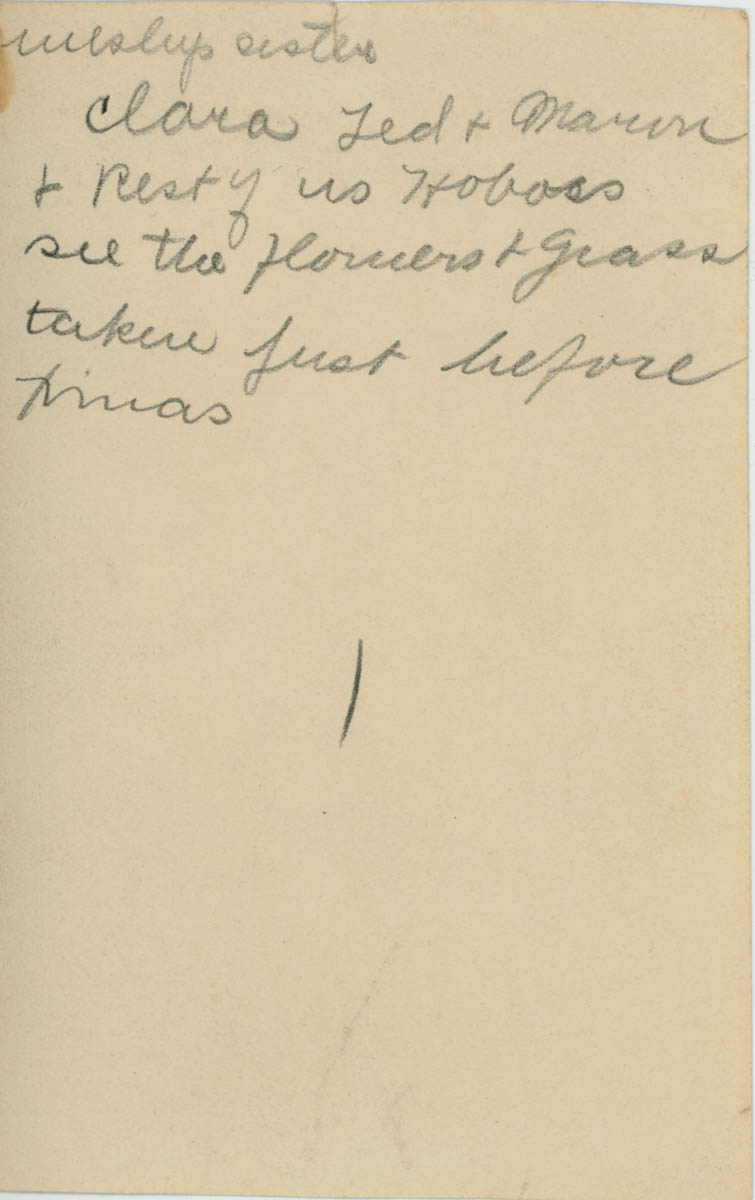 sister
Clara Ted & Marion
& Rest of us Hoboes
see the Flowers & Grass
taken just before
Xmas